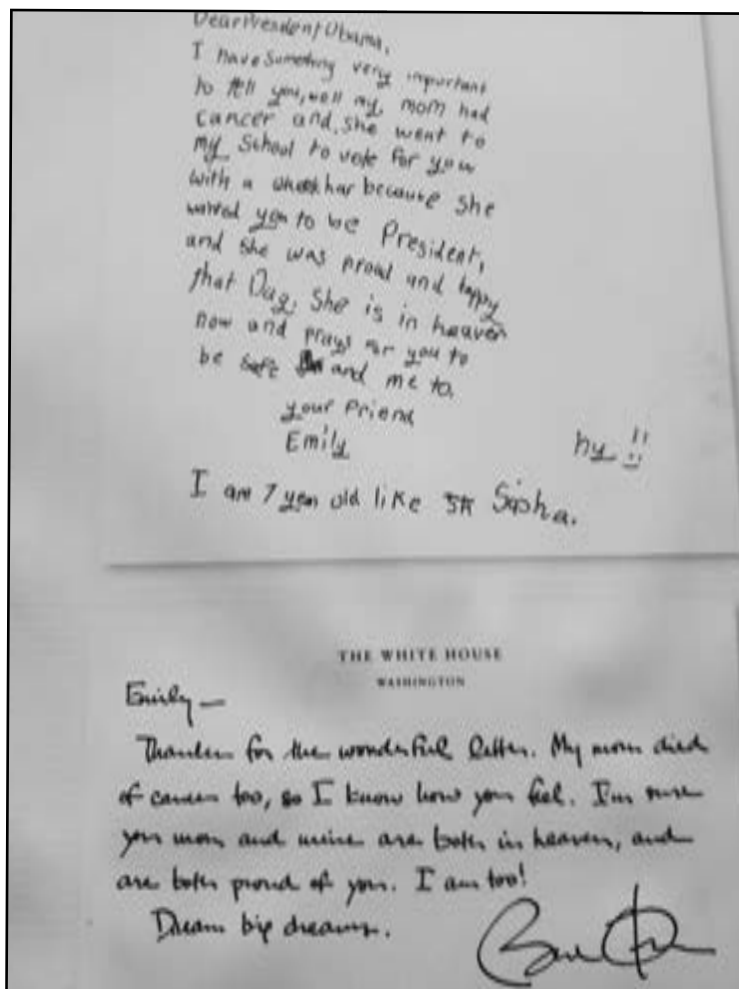 Dear President Obama,
I have Something very important
to tell you, well my mom had
cancer and, she went to
my School to vote for you
with a because she
you to be President,
and she was proud and happy
that Day. She is in heaven
now and prays for you to
be safe and me to.
your Friend
Emily
ny !!
I am 7 years old like Sasha.
THE WHITE HOUSE
WASHINGTON
Emily —
Thanks for the wonderful letter. My mom died
of cancer too, so I know how you feel. I'm sure
your mom and mine are both in heaven, and
are both proud of you. I am too!
Dream big dreams.